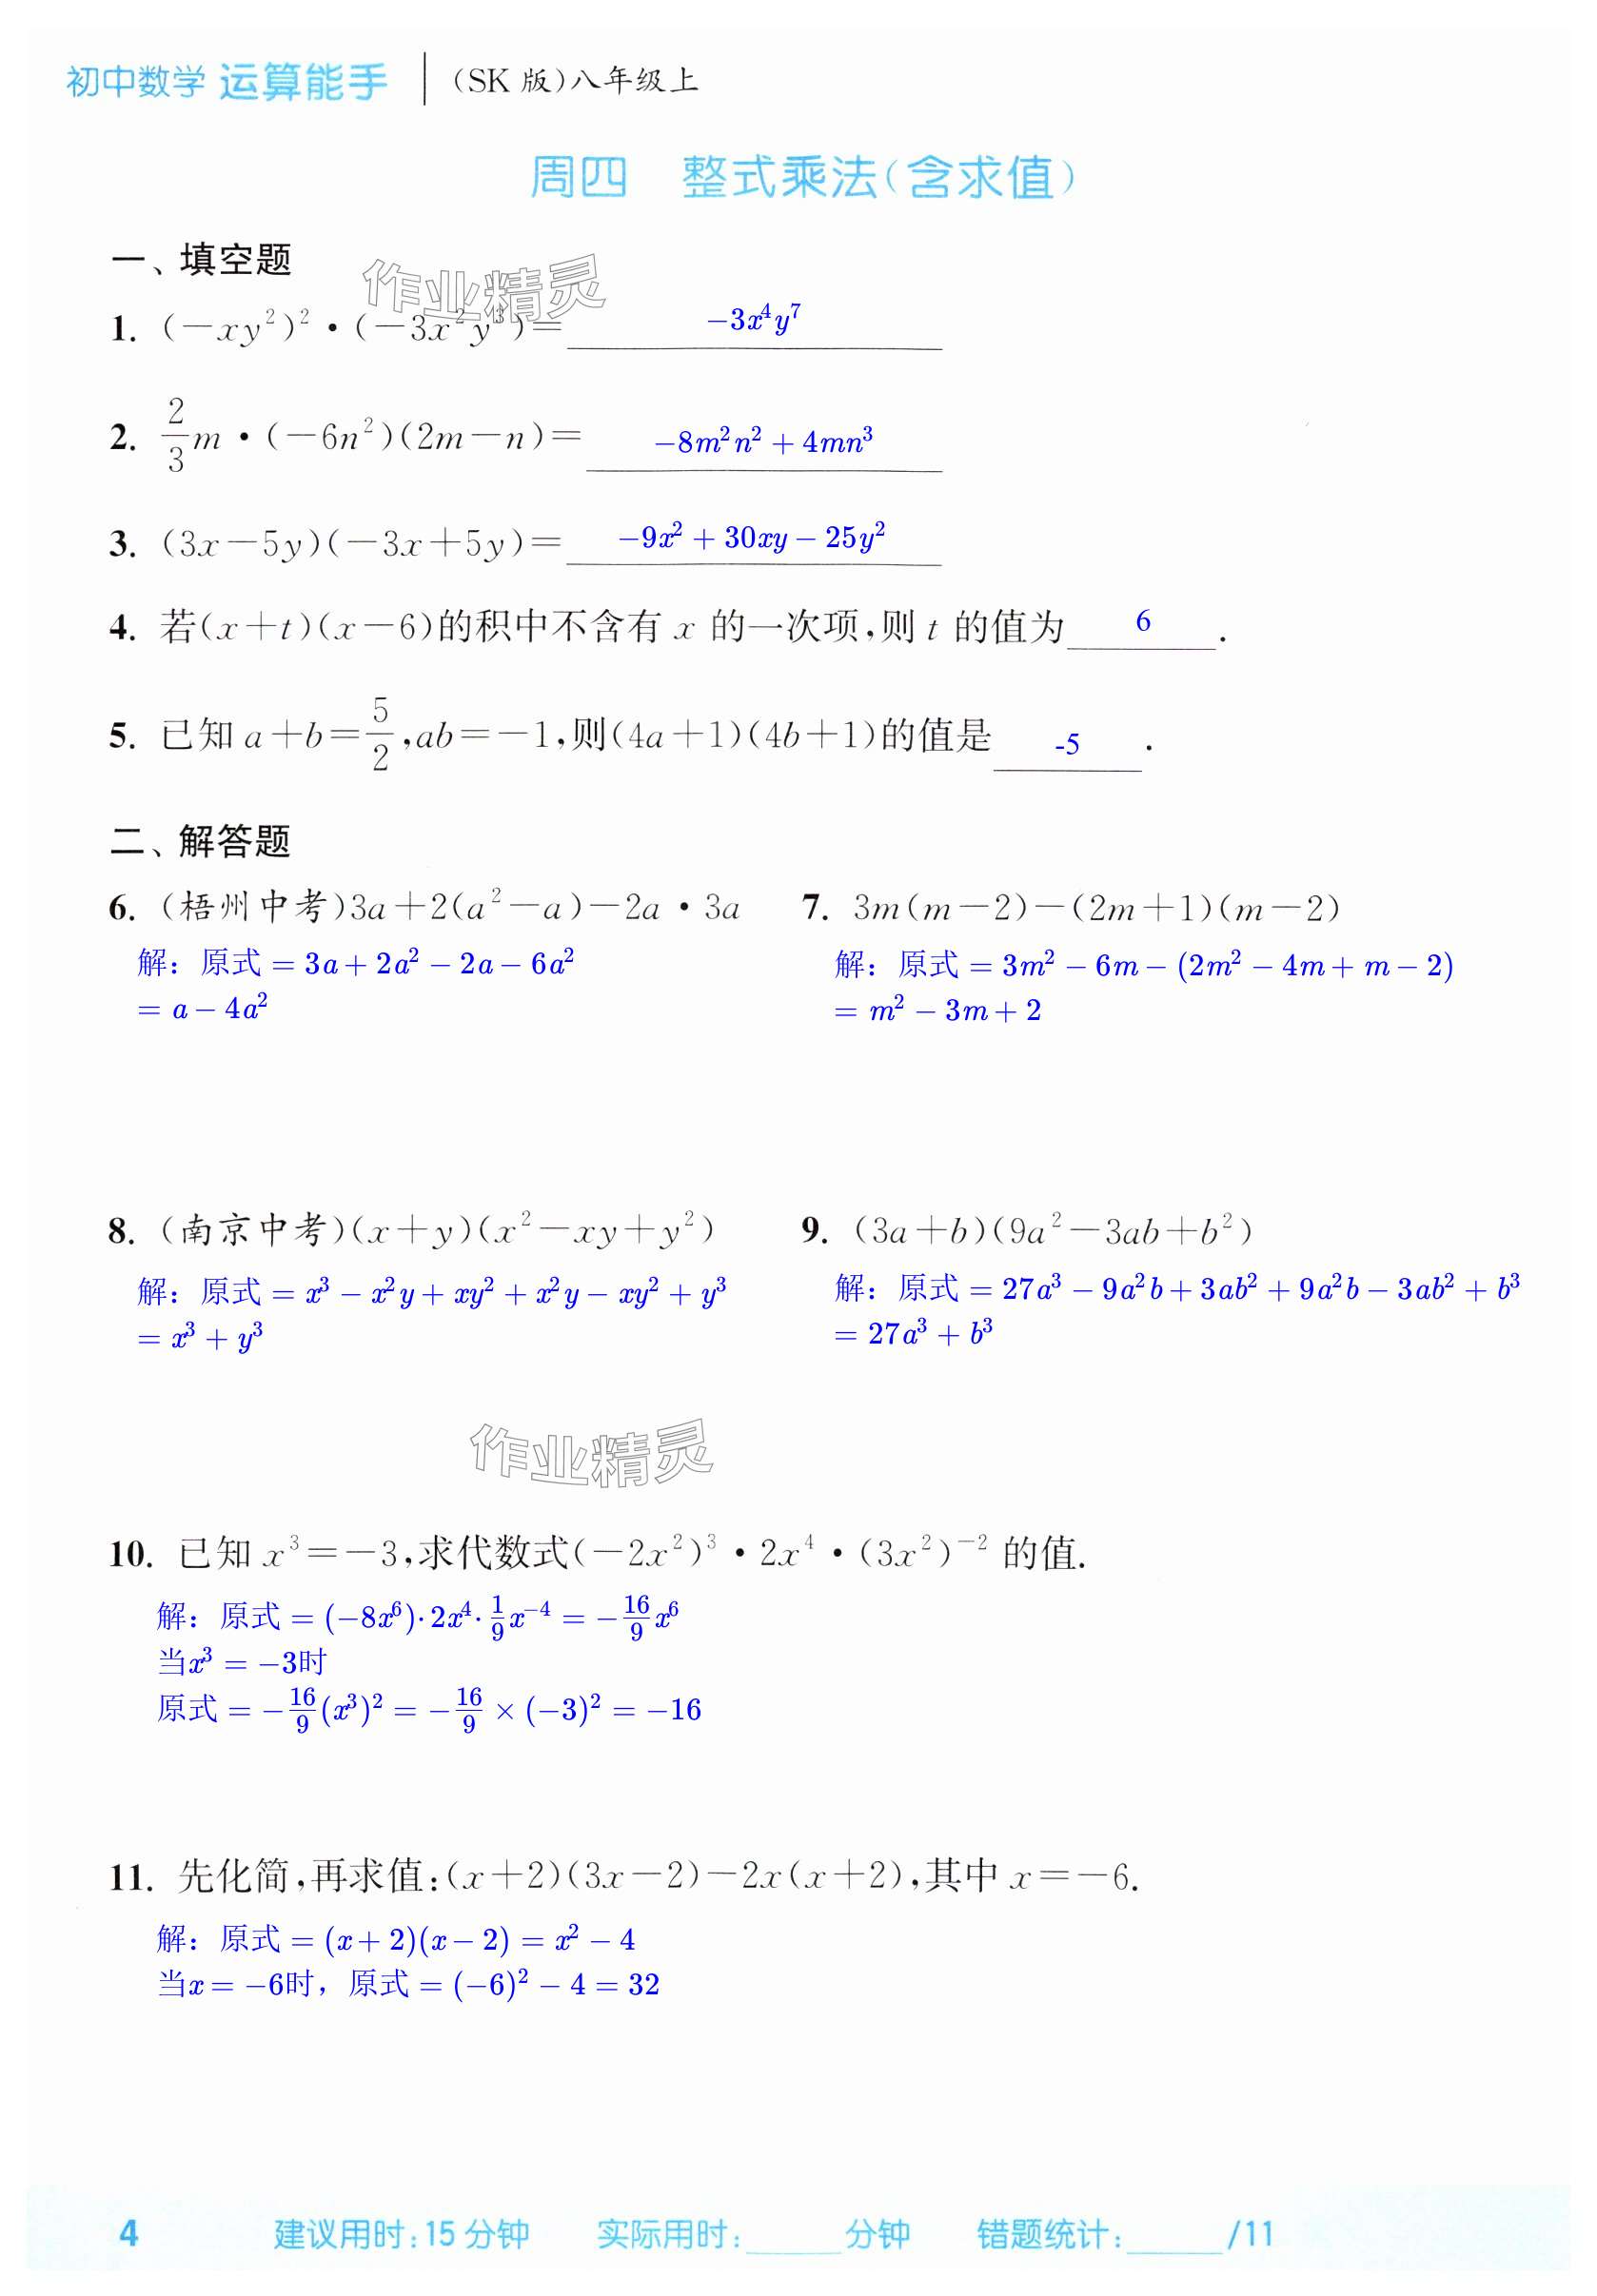 初中数学 运算能手 (SK 版)八年级上
周四 整式乘法(含求值)
一、填空题
作业精灵
1. (－xy²)²•(－3x²y³)＝ －3x⁴y⁷
2. 2/3 m•(－6n²)(2m－n)＝ －8m²n²＋4mn³
3. (3x－5y)(－3x＋5y)＝ －9x²＋30xy－25y²
4. 若(x＋t)(x－6)的积中不含有 x 的一次项,则 t 的值为 6 .
5. 已知 a＋b＝5/2,ab＝－1,则(4a＋1)(4b＋1)的值是 -5 .
二、解答题
6. (梧州中考)3a＋2(a²－a)－2a•3a
解：原式＝3a＋2a²－2a－6a²
＝a－4a²
7. 3m(m－2)－(2m＋1)(m－2)
解：原式＝3m²－6m－(2m²－4m＋m－2)
＝m²－3m＋2
8. (南京中考)(x＋y)(x²－xy＋y²)
解：原式＝x³－x²y＋xy²＋x²y－xy²＋y³
＝x³＋y³
9. (3a＋b)(9a²－3ab＋b²)
解：原式＝27a³－9a²b＋3ab²＋9a²b－3ab²＋b³
＝27a³＋b³
作业精灵
10. 已知 x³＝－3,求代数式(－2x²)³•2x⁴•(3x²)⁻² 的值.
解：原式＝(－8x⁶)·2x⁴·1/9 x⁻⁴＝－16/9 x⁶
当x³＝－3时
原式＝－16/9(x³)²＝－16/9×(－3)²＝－16
11. 先化简,再求值:(x＋2)(3x－2)－2x(x＋2),其中 x＝－6.
解：原式＝(x＋2)(x－2)＝x²－4
当x＝－6时，原式＝(－6)²－4＝32
4 建议用时:15 分钟 实际用时:______分钟 错题统计:______/11